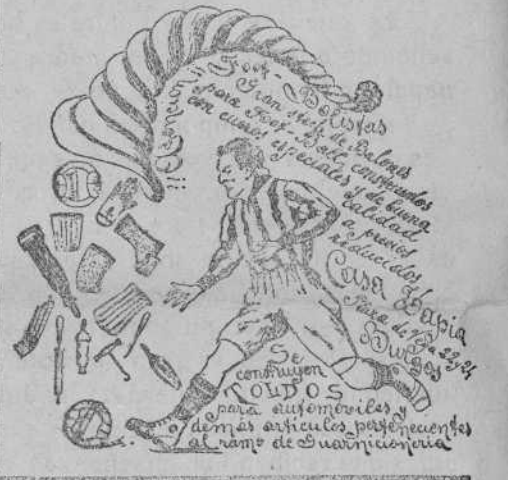 ¡¡Atención!! Foot-Bolistas
Gran stok de Balones
para Foot-Ball, construidos
con cueros especiales y de buena
calidad
a precios
reducidos
Casa Tapia
Plaza de 22 y 24
Burgos
Se
construyen
TOLDOS
para automóviles y
demás artículos pertenecientes
al ramo de Guarnicionería